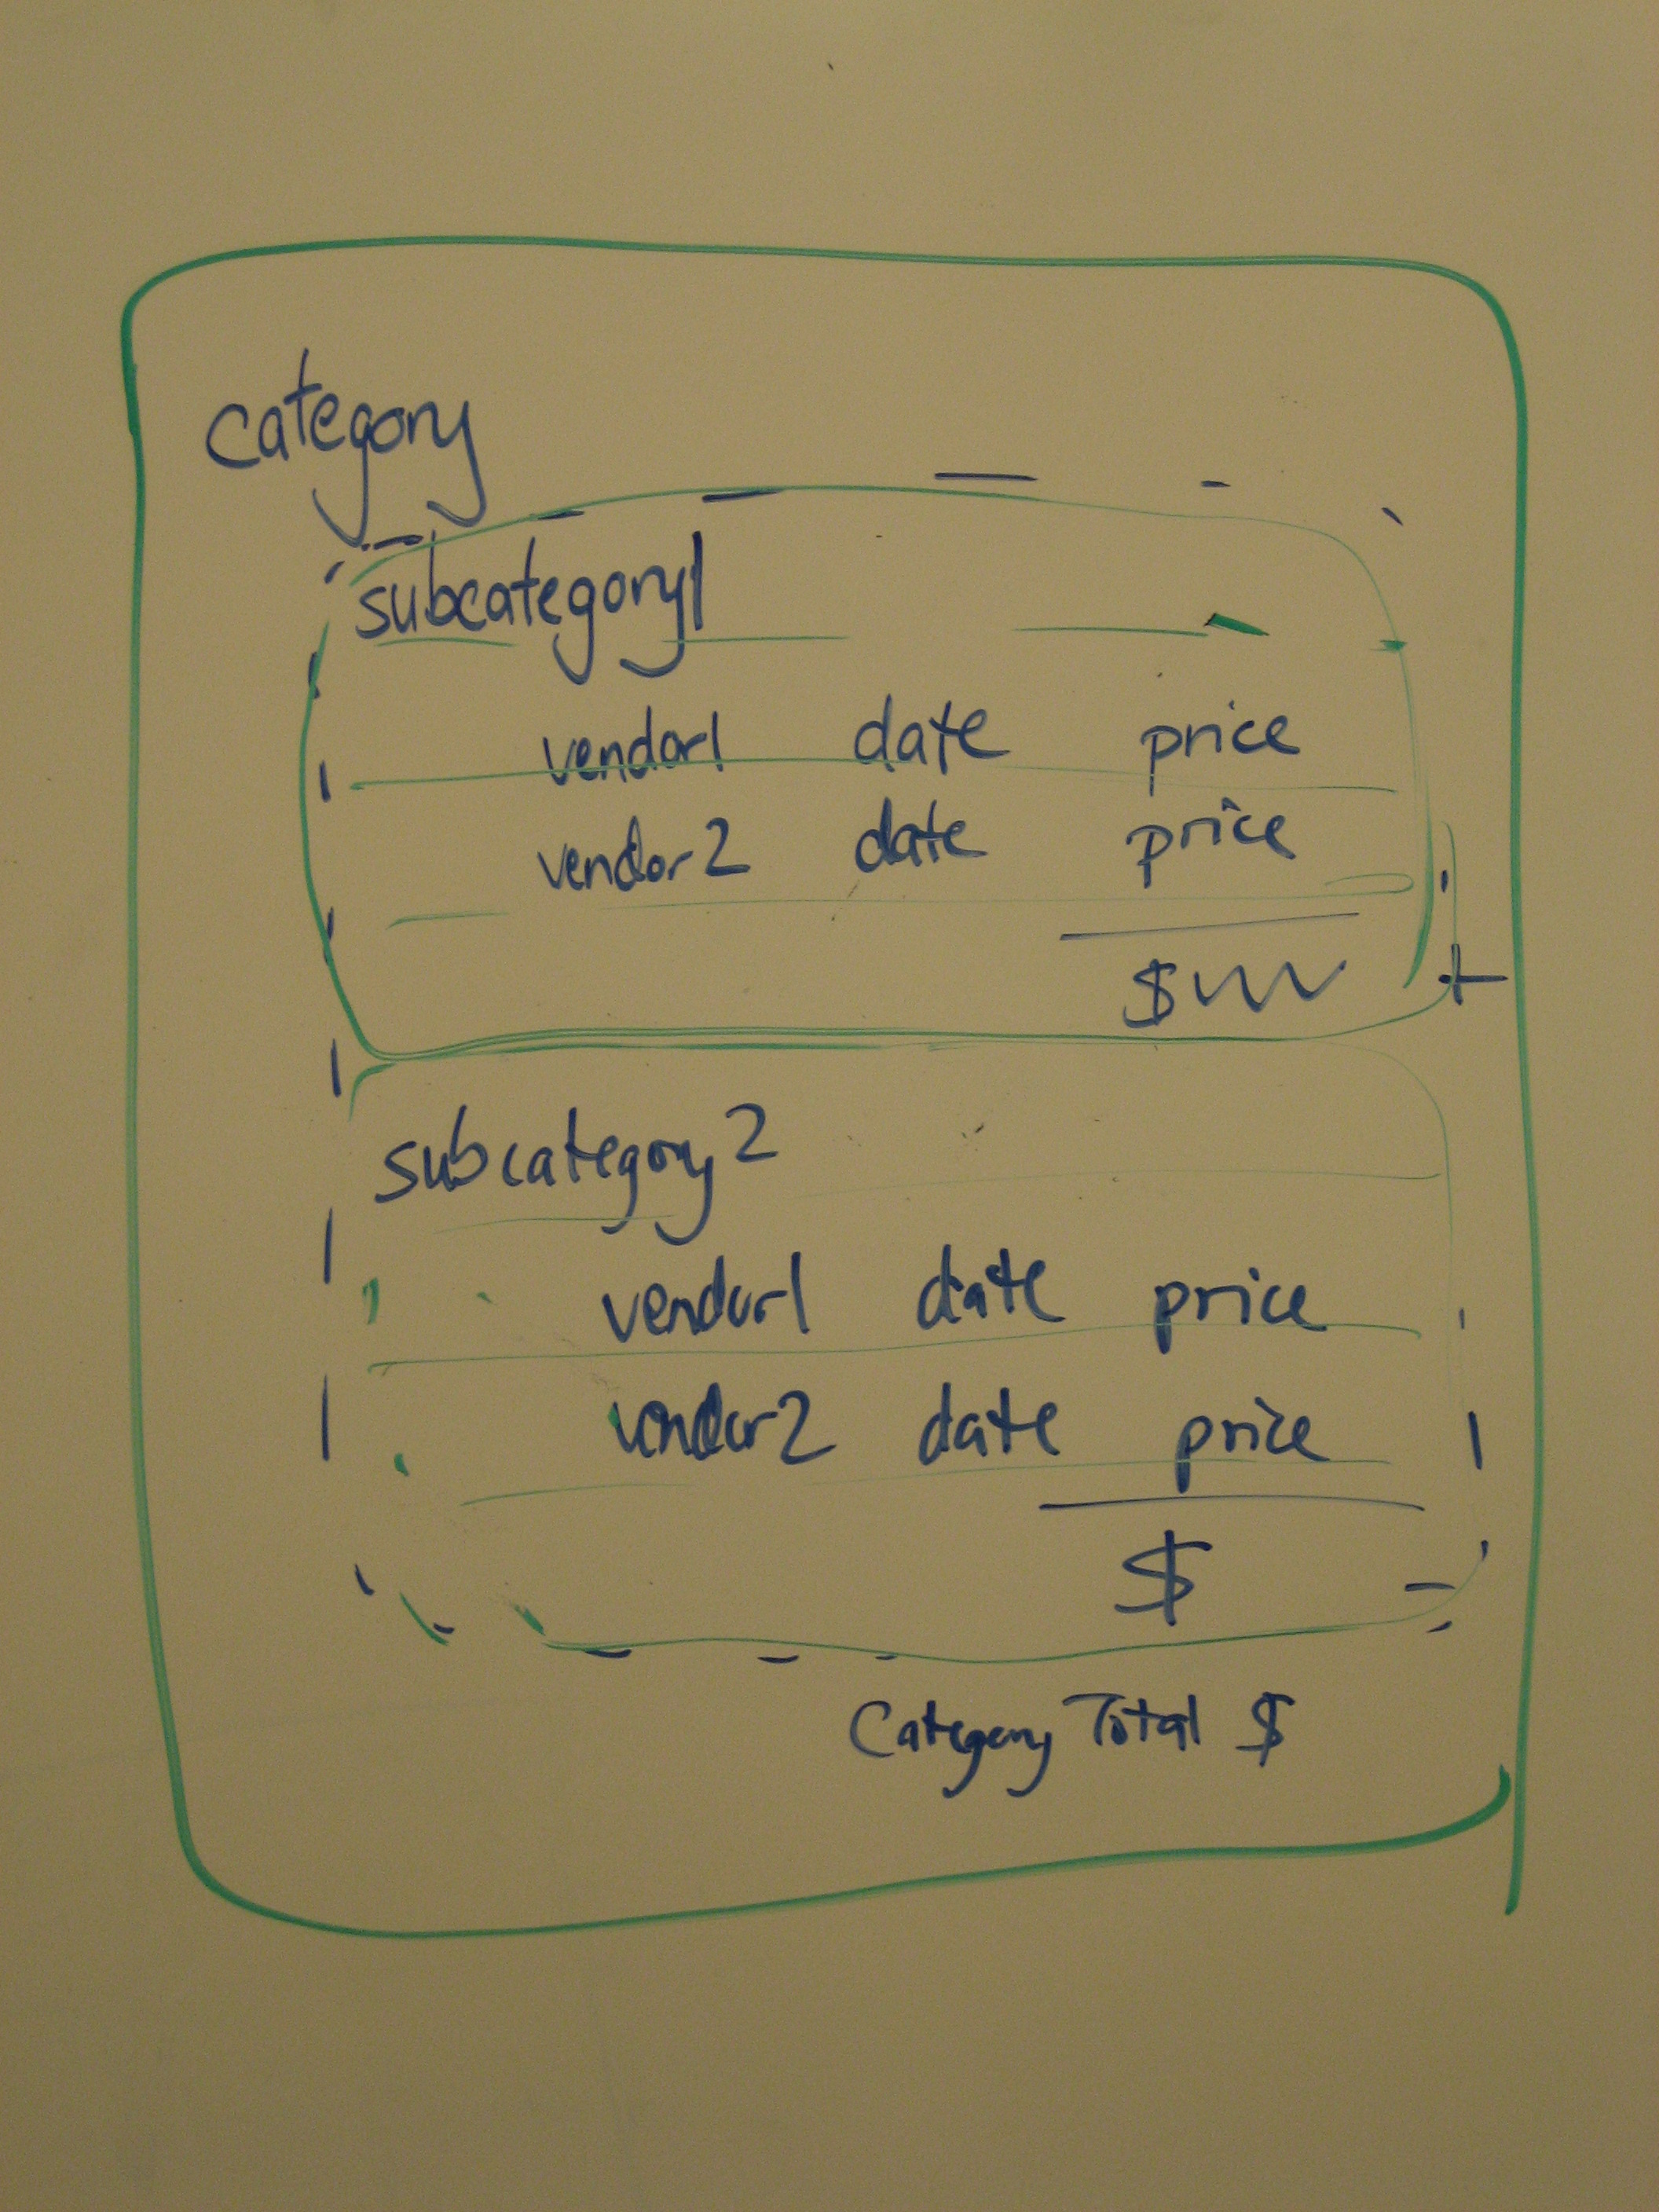 category
subcategory1
vendor1 date price
vendor2 date price
$
subcategory2
vendor1 date price
vendor2 date price
$
Category Total $